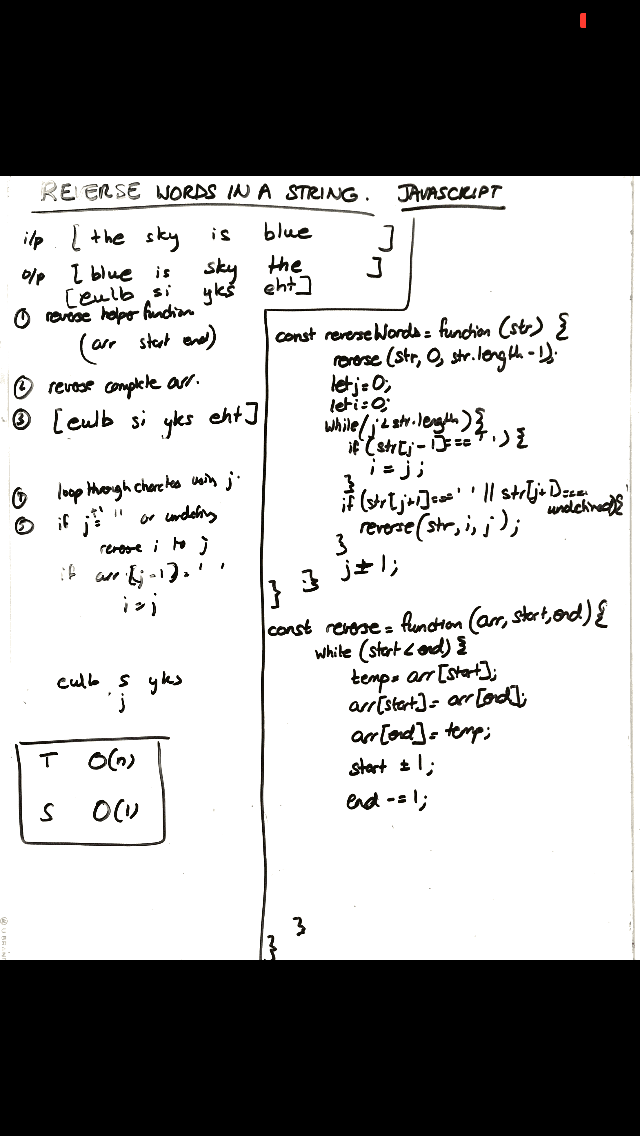 REVERSE WORDS IN A STRING. JAVASCRIPT
i/p [ the sky is blue ]
o/p [ blue is sky the ]
[ eulb si yks eht ]
① reverse helper function
(arr start end)
② reverse complete arr.
③ [ eulb si yks eht ]
loop through characters using j.
if j+1 = '' or undefined
reverse i to j
if arr[j-1] = ' '
i = j
eulb s yks
j
T O(n)
S O(1)
const reverseWords = function (str) {
reverse (str, 0, str.length -1);
let j=0;
let i=0;
while(j < str.length) {
if (str[j-1] === ' ') {
i = j;
}
if (str[j+1] === ' ' || str[j+1) === undefined) {
reverse(str, i, j);
}
j += 1;
} }
const reverse = function (arr, start, end) {
while (start < end) {
temp = arr[start];
arr[start] = arr[end];
arr[end] = temp;
start += 1;
end -= 1;
}
}